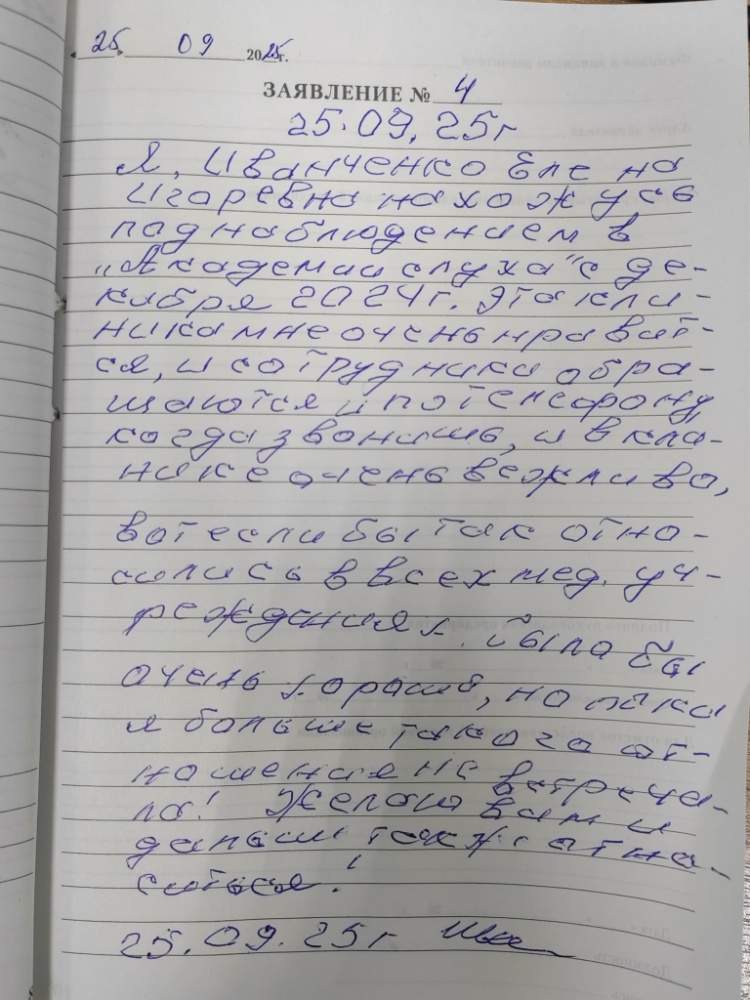 25 09 2025г.
ЗАЯВЛЕНИЕ № 4
25.09.25г
Я, Иванченко Елена
Игоревна нахожусь
под наблюдением в
„Академии слуха" с де-
кабря 2024г. Эта кли-
ника мне очень нравит-
ся, и сотрудники обра-
щаются и по телефону,
когда звонишь, и в кли-
нике очень вежливо,
вот если бы так отно-
сились в всех мед. уч-
реждениях. Было бы
очень хорошо, но пока
я больше такого от-
ношения не встреча-
ла! Желаю вам и
дальше так же отно-
ситься!
25.09.25г